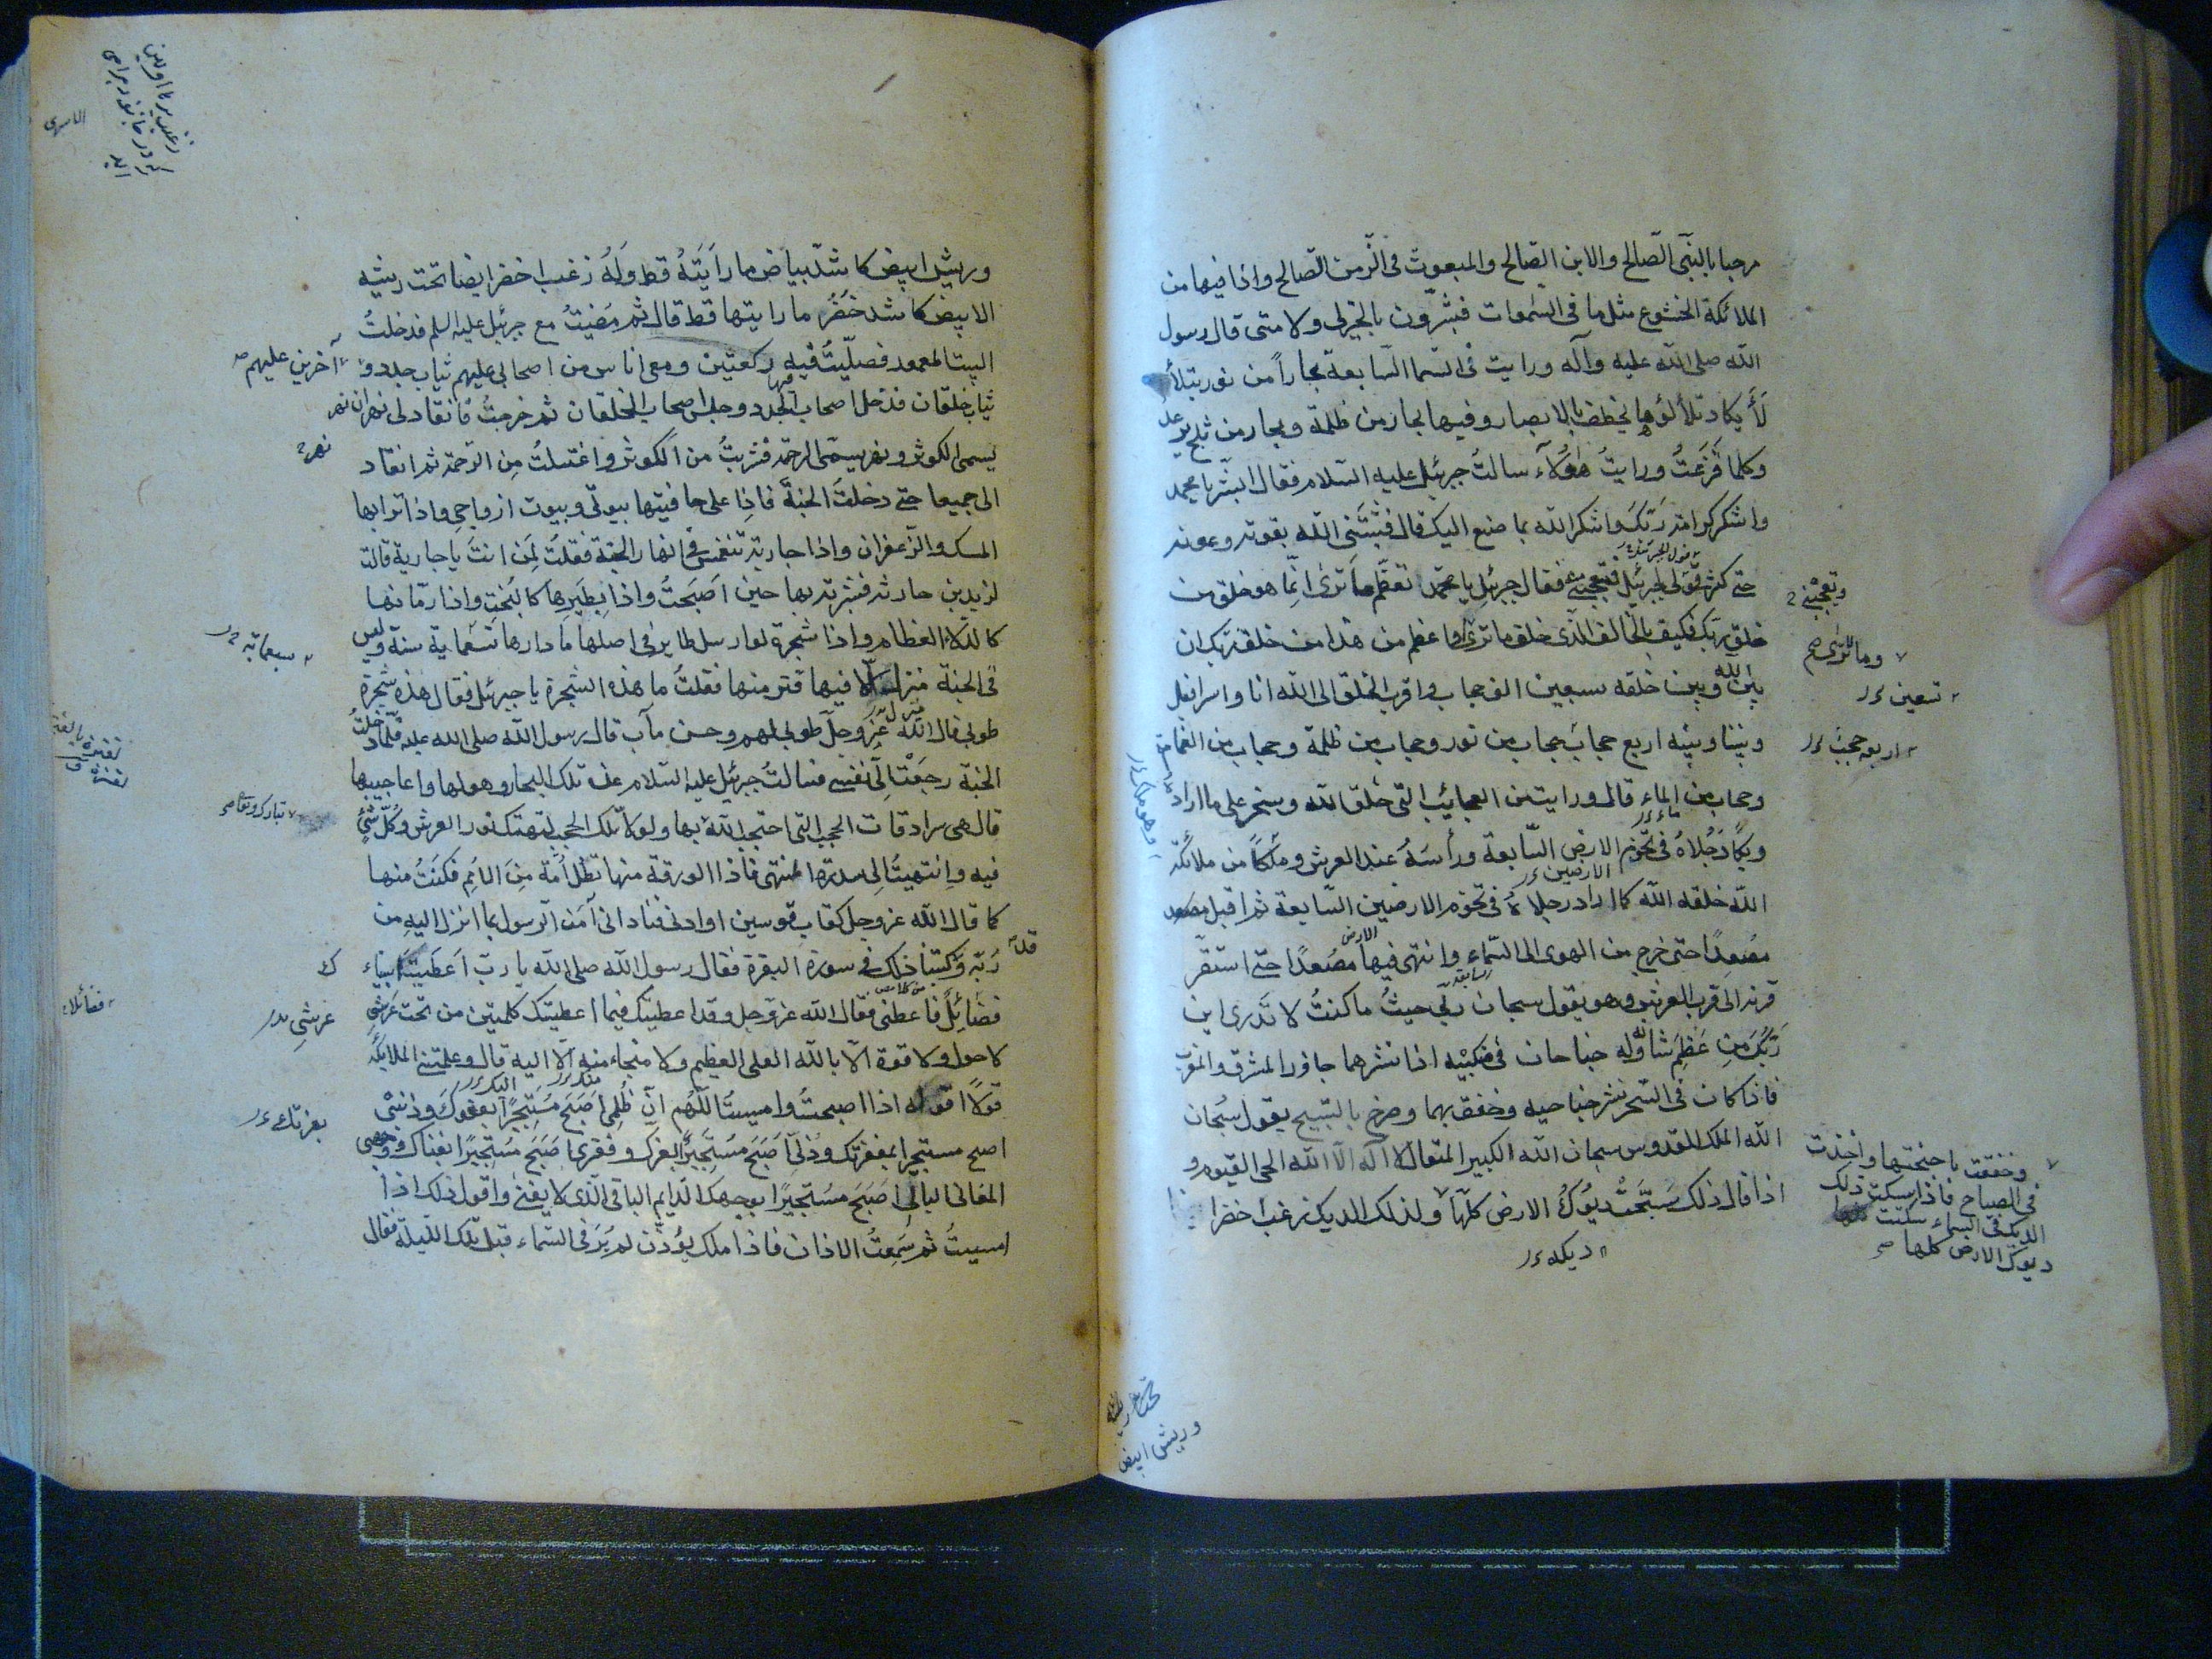 مرحبا بالنبّى الصّالح والابن الصّالح والمبعوث فى الزّمن الصّالح واذا فيها من
الملائكة الخشوع مثل ما فى السّموات فبشّرون بالخير لى ولامتى قال رسول
اللّه صلى اللّه عليه وآله ورايت فى السّما السّابعة بحاراً من نور يتلألأ
يكاد تلألؤها يخطف بالابصار وفيها بحار من ظلمة وبحار من ثلج
وكلما فَزَعتُ ورايتُ هؤلآء سالتُ جبرئيل عليه السّلام فقال ابشر يا محمد
واشكر كرامة رَبّكَ واشكر اللّه بما صنع اليك قال فثبّتنى اللّه بقوته وعونه
حتى كثر قولى لجبرئيل وتعجبى فقال جبرئيل يا محمد تعظّم ما ترى انّما هو خلق من
خلق ربّك فكيف بالخالق الذّى خلق ما ترى وما اعظم من هذا من خلق ربّك ان
بين اللّه وبين خلقه سبعين الف حجاب واقرب الخلق الى اللّه انا واسرافيل
وبيننا وبينه اربع حجاب حجاب من نور وحجاب من ظلمة وحجاب من الغمامة
وحجاب من الماء قال ورايت من العجائب التى خلق اللّه وسخر على ما اراد
ديكًا رجْلاهُ فى تخوم الارض السّابعة ورأسَهُ عند العرش ومَلَكاً من ملائكة
اللّه خلقه اللّه كما اراد رجلاهُ فى تخوم الارضين السّابعة ثم اقبل
مصُعدًا حتى خرج من الهوى الى السّماء وانتهى فيها مصُعدًا حتى استقرّ
قرنه الى قرب العرش وهو يقول سبحان ربّى حيثُ ما كنتُ لا تَدرى اين
رَبّكَ مِن عَظِمَ شانه وله جناحان فى مَنكبَيه اذا نشرهما جاوز المشرق والمغرب
فاذا كان فى السّحر نشر جناحيه وخفق بهما وصرخ بالتّسبيح يقول سُبحان
اللّه الملك القدوس سبحان اللّه الكبير المتعال لا اله الا اللّه الحى القيوم و
اذا قال ذلك سَبّحَتْ ديُوكُ الارض كلّها ولذلك الديك زغب اخضر
وتعجبى
وما ترى
تسعين
اربعة حجب
ماء
الارضين
الارض
السابعة
وخفقت باجنحتها واخذت
فى الصياح فاذا سكت ذلك
الديك فى السماء سكتت
ديوك الارض كلها صح
ديكه
وريش ابيض
وريش ابيض كاشدّ بياض ما رايَتهُ قط ولَهُ زغب اخضر ايضا تحت ريشه
الابيض كاشد خُضَرُ ما رايتها قط قال ثم مضَيتُ مع جبرئيل عليه السلم فدخلتُ
البيت المعمور فصلّيتُ فيه ركعتين ومعى اناس من اصحابى عليهم ثياب جدد و
ثياب خلقان فدخل اصحاب الجدد وجلس اصحاب الخلقان ثم خرجتُ فانقاد لى نهران نهر
يسمى الكوثر ونهر يسمّى الرحمة فشربتُ من الكوثر واغتسلتُ مِن الرّحمة ثم انقاد
الى جميعا حتى دخلت الجنّة فاذا على حافيتها بيوتى وبيوت ازواجى واذا ترابها
المسك والزّعفران واذا جارية تنغمس فى انهار الجنة فقلتُ لِمَن انت يا جارية قالت
لزيد بن حارثه فبشرته بها حين اَصبَحتُ واذا بِطَيرِها كالبُخت واذا رمّانها
كالدلاء العظام واذا شجرة لو ارسل طاير فى اصلها ما دارها تسعماية سنة وليس
فى الجنة منزل الّا فيها قتر منها فقلتُ ما هذه الشجرة يا جبرئيل فقال هذه شجرة
طوبى قال اللّه عزّ وجلّ طوبى لهم وحسن مآب قال رسول اللّه صلى اللّه عليه فلمّا دخلتُ
الجنّة رجَعَتْ الىّ نفسى فسالتُ جبرئيل عليه السّلام عن تلك البحار وهولها واعاجيبها
قال هى سرادقات الحجب التى احتجب اللّهُ بها ولولا تلك الحجب لتهتك نور العرش وكلّ شئ
فيه وانتهيتُ الى سدرة المنتهى فاذا الورقة منها تظلّ اُمّة مِنَ الامَم فكنتُ منها
كما قال اللّه عزّ وجل كقاب قوسين او ادنى فنادانى آمَنَ الرسول بما انزل اليه من
رَبّه وكتبنا ذلك فى سورة البقرة فقال رسول اللّه صلى اللّه يا ربّ اَعطَيتَ انبياءك
فضَائِلَ فاعطنى فقال اللّه عزّ وجل وقد اعطيتك فيما اعطيتك كلمتين من تحت عَرشى
لا حول ولا قوة الّا باللّه العلى العظيم ولا منجاء منه الّا اليه قال وعلمتنى الملائكةُ
قولًا اقوله اذا اصبحتُ وامسيتُ اللّهم انّ ظُلمى اَصبَحَ مُستَجيرًا بعفوك وذنبى
اصبح مستجيرا بمغفرتك وذُلّى اَصبَحَ مُستَجيرًا بعزك وفقرى اَصبَحَ مُستَجيرًا بغناك ووجهى
الفانى البالى اَصبَحَ مسُتَجيرًا بوجهك الدّايم الباقى الذى لا يفنى واقول ذلك اذا
امسيتُ ثم سَمعتُ الاذان فاذا ملك يؤذّن لم يُرَ فى السّماء قبل تلك اللّيلة فقال
آخرين عليهم
نهر
سبعماية
تبارك وتعالى
فضائلا
عرشى
بعزتك